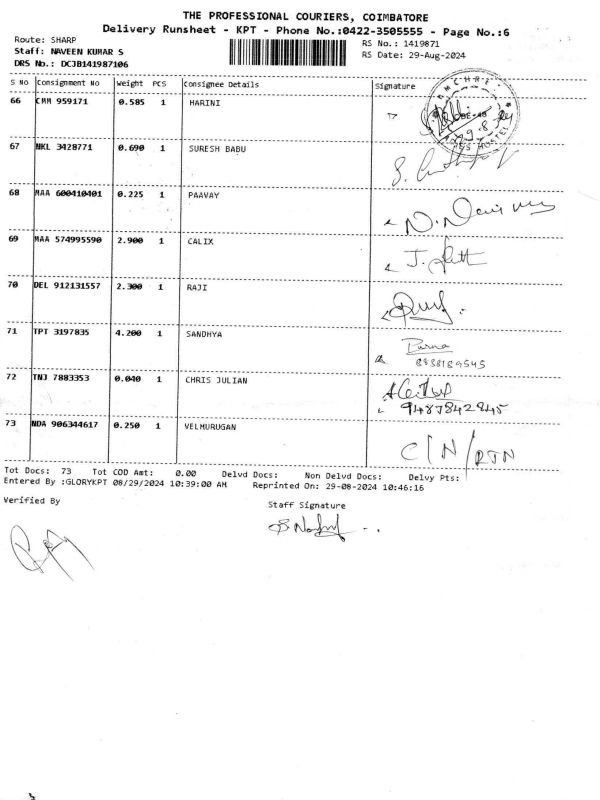 THE PROFESSIONAL COURIERS, COIMBATORE
Delivery Runsheet - KPT - Phone No.:0422-3505555 - Page No.:6
Route: SHARP RS No.: 1419871
Staff: NAVEEN KUMAR S RS Date: 29-Aug-2024
DRS No.: DCJB141987106
S No Consignment No Weight PCS Consignee Details Signature
66 CMM 959171 0.585 1 HARINI
67 NKL 3428771 0.690 1 SURESH BABU
68 MAA 600410401 0.225 1 PAAVAY
69 MAA 574995590 2.900 1 CALIX
70 DEL 912131557 2.300 1 RAJI
71 TPT 3197835 4.200 1 SANDHYA
Purna
72 TNJ 7883353 0.040 1 CHRIS JULIAN
73 NDA 906344617 0.250 1 VELMURUGAN C/N/RTN
Tot Docs: 73 Tot COD Amt: 0.00 Delvd Docs: Non Delvd Docs: Delvy Pts:
Entered By :GLORYKPT 08/29/2024 10:39:00 AM Reprinted On: 29-08-2024 10:46:16
Verified By Staff Signature